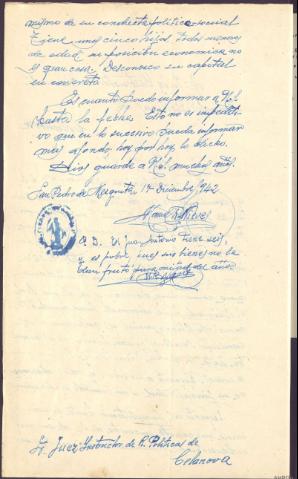 mismo de su conducta politico-social
Tiene unos cinco hijos todos menores
de edad, su posición economica no
es gran cosa. Desconozco su capital
en concreto.
Es cuanto puedo informar a Vd.
hasta la fecha. Esto no es
vo que en lo sucesivo pueda informar
mas afondo, hoy por hoy lo dicho.
Dios guarde a Vd. muchos años.
San Pedro de Mezquita 17 Diciembre 1942
P. D. El Juan Antonio tiene seis,
y es pobre, pues sus bienes no le
dan fruto para mitad del año.
Sr. Juez Instructor de R. Politicas de
Celanova